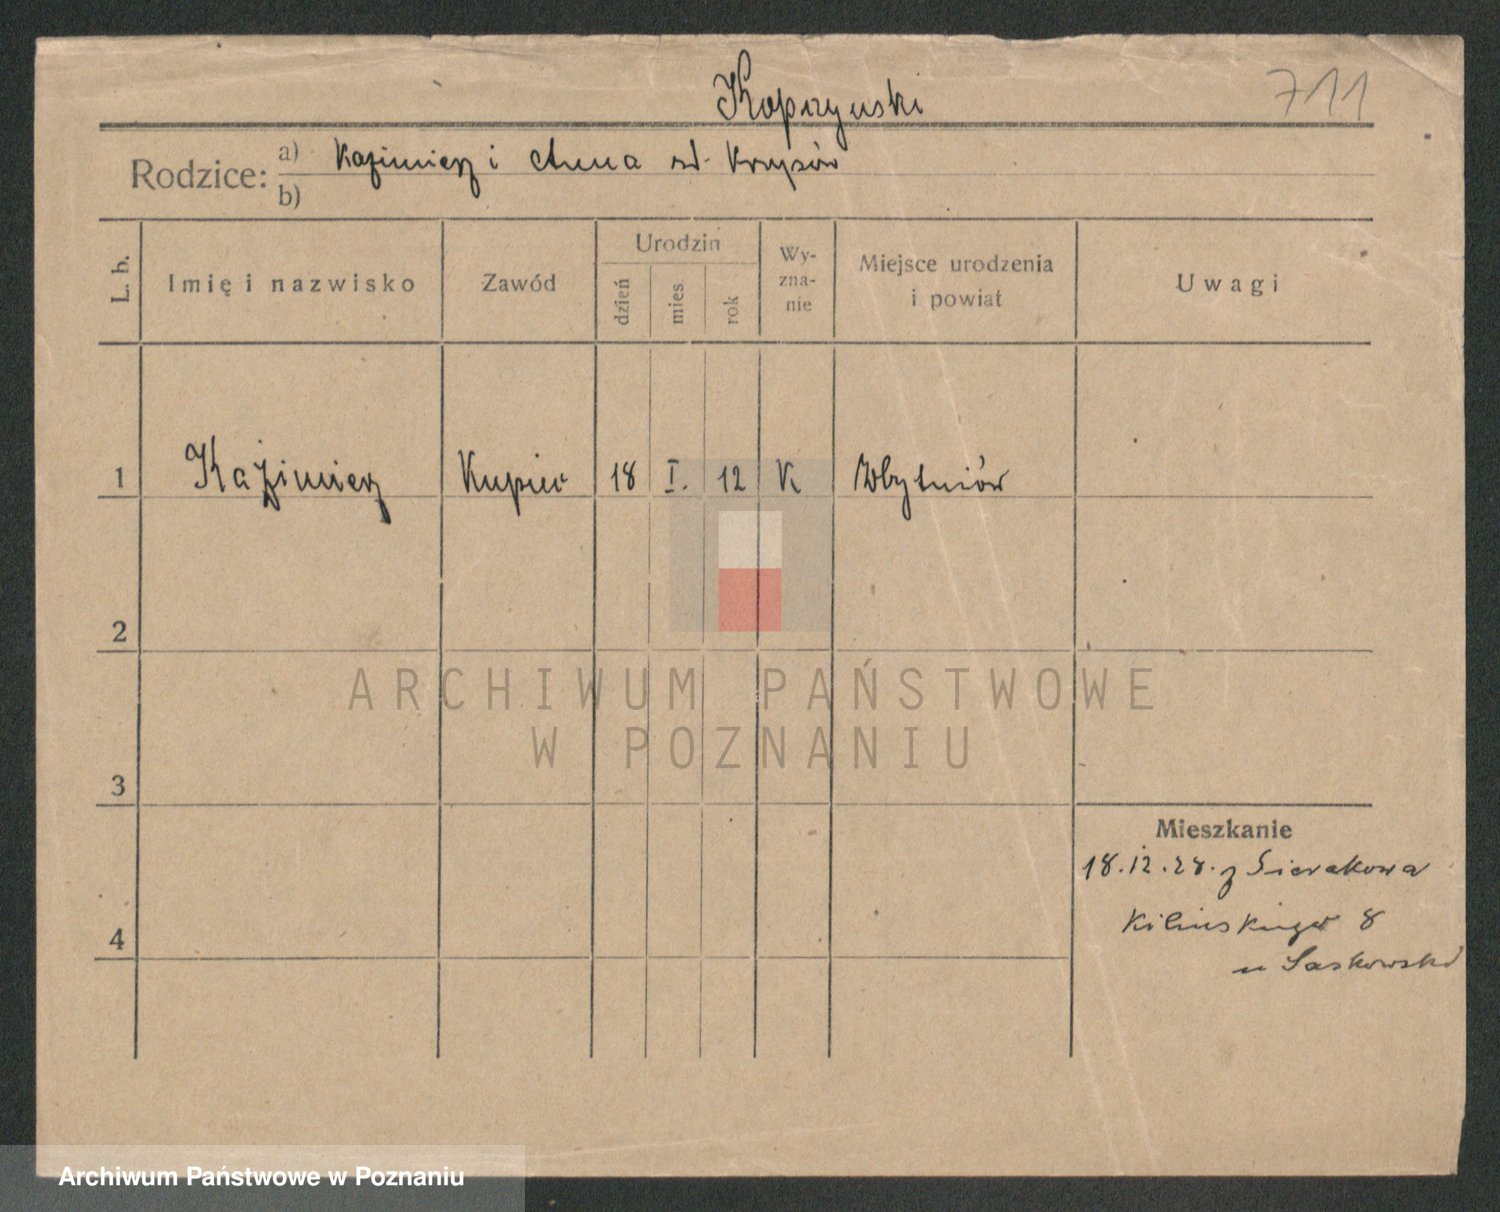 Koprzyuski 711
Rodzice: a) Kazimierz i Anna zd. Krzysów
b)
L. b. Imię i nazwisko Zawód Urodzin dzień mies. rok Wyznanie Miejsce urodzenia i powiat Uwagi
1 Kazimierz Kupiec 18 I. 12 K
2
ARCHIWUM PAŃSTWOWE
W POZNANIU
3
Mieszkanie
18.12.28. z Sierakowa
Kilinskiego 8
4
u Laskowski
Archiwum Państwowe w Poznaniu